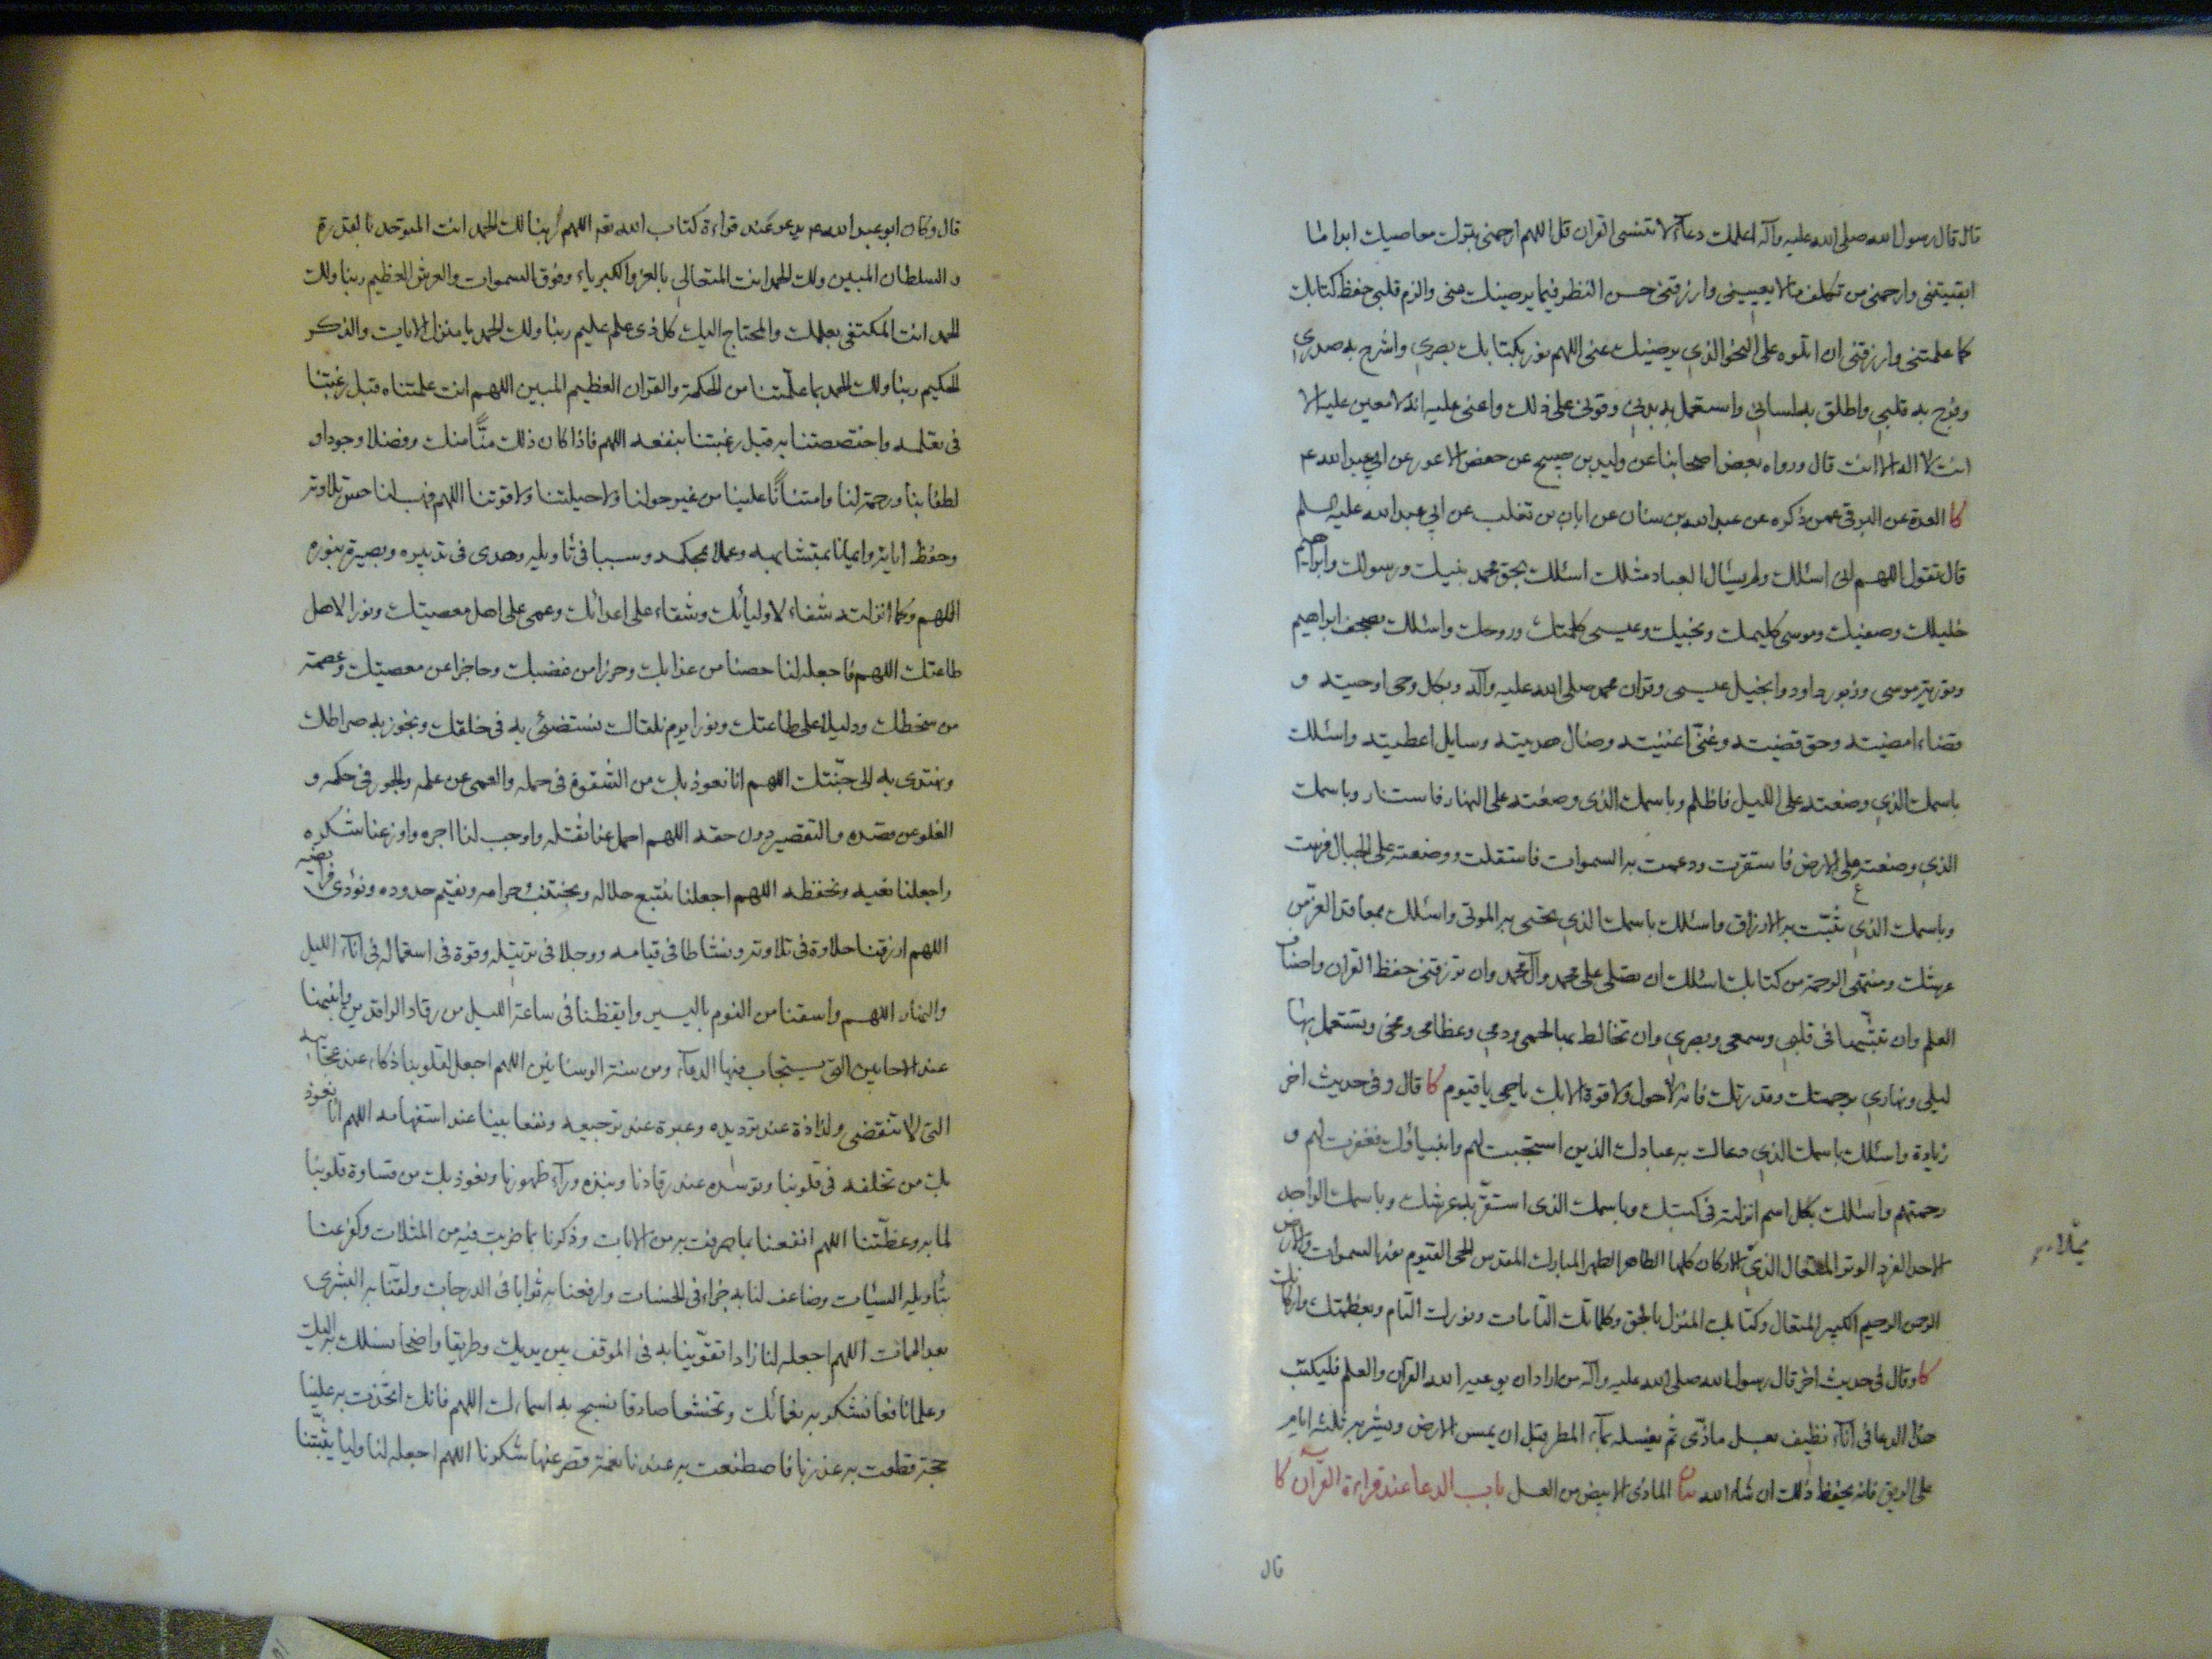 قال قال رسول الله صلى الله عليه وآله اعلمك دعاء لا تنسى القران قل اللهم ارحمنى بترك معاصيك ابدا ما
ابقيتنى وارحمنى من تكلف ما لا يعنينى وارزقنى حسن النظر فيما يرضيك عنى والزم قلبى حفظ كتابك
كما علمتنى وارزقنى ان اتلوه على النحو الذى يرضيك عنى اللهم نور بكتابك بصرى واشرح به صدرى
وفرح به قلبى واطلق به لسانى واستعمل به بدنى وقونى على ذلك واعنى عليه انه لا معين عليه الا
انت لا اله الا انت قال ورواه بعض اصحابنا عن وليد بن صبيح عن حفص الاعور عن ابي عبد الله ع
كا العدة عن البرقى عمن ذكره عن عبد الله بن سنان عن ابان بن تغلب عن ابي عبد الله عليه السلم
قال تقول اللهم انى اسئلك ولم يسأل العباد مثلك اسئلك بحق محمد نبيك ورسولك وابراهيم
خليلك وصفيك وموسى كليمك ونجيك وعيسى كلمتك وروحك واسئلك بصحف ابراهيم
وتورية موسى وزبور داود وانجيل عيسى وقران محمد صلى الله عليه وآله وبكل وحى اوحيته و
قضاء امضيته وحق قضيته وغنى اغنيته وضال هديته وسايل اعطيته واسئلك
باسمك الذى وضعته على الليل فاظلم وباسمك الذى وضعته على النهار فاستنار وباسمك
الذى وضعته على الارض فاستقرت ودعمت به السموات فاستقلت ووضعته على الجبال فرست
وباسمك الذى بثثت به الارزاق واسئلك باسمك الذى تحيى به الموتى واسئلك بمعاقد العز من
عرشك ومنتهى الرحمة من كتابك اسئلك ان تصلى على محمد وآل محمد وان ترزقنى حفظ القران واصناف
العلم وان تثبتها فى قلبى وسمعى وبصرى وان تخالط بها لحمى ودمى وعظامى ومخى وتستعمل بها
ليلى ونهارى برحمتك وقدرتك فانه لا حول ولا قوة الا بك يا حى يا قيوم كا قال وفى حديث اخر
زيادة واسئلك باسمك الذى دعاك به عبادك الذين استجبت لهم وانبياؤك فغفرت لهم و
رحمتهم واسئلك بكل اسم انزلته فى كتبك وباسمك الذى استقر به عرشك وباسمك الواحد
الاحد الفرد الوتر المتعال الذى يملأ الاركان كلها الطاهر الطهر المبارك المقدس الحى القيوم نور السموات والارض
الرحمن الرحيم الكبير المتعال وكتابك المنزل بالحق وكلماتك التامات ونورك التام وبعظمتك واركانك
كا وقال فى حديث اخر قال رسول الله صلى الله عليه وآله من اراد ان يوعيه الله القرآن والعلم فليكتب
هذا الدعا فى اناء نظيف بعسل ماذى ثم يغسله بماء المطر قبل ان يمس الارض ويشربه ثلثة ايام
على الريق فانه يحفظ ذلك ان شاء الله بيان الماذى الابيض من العسل باب الدعا عند قراءة القرآن كا
قال
قال وكان ابو عبد الله ع يدعو عند قراءة كتاب الله تعم اللهم ربنا لك الحمد انت المتوحد بالقدرة
والسلطان المبين ولك الحمد انت المتعالى بالعز والكبرياء وفوق السموات والعرش العظيم ربنا ولك
الحمد انت المكتفى بعلمك والمحتاج اليك كل ذى علم عليم ربنا ولك الحمد يا منزل الايات والذكر
الحكيم ربنا ولك الحمد بما علمتنا من الحكمة والقران العظيم المبين اللهم انت علمتناه قبل رغبتنا
فى تعلمه واختصصتنا به قبل رغبتنا بنفعه اللهم فاذا كان ذلك منّاً منك وفضلا وجودا و
لطفا بنا ورحمة لنا وامتنانًا علينا من غير حولنا ولا حيلتنا ولا قوتنا اللهم فهب لنا حسن تلاوته
وحفظ اياته وايمانا بمتشابهه وعملا بمحكمه وسببا فى تاويله وهدى فى تدبيره وبصيرة بنوره
اللهم وكما انزلته شفاء لاوليائك وشقاء على اعدائك وعمى على اهل معصيتك ونورا لاهل
طاعتك اللهم فاجعله لنا حصنا من عذابك وحرزا من غضبك وحاجزا عن معصيتك وعصمة
من سخطك ودليلا على طاعتك ونورا يوم نلقاك نستضئ به فى خلقك ونجوز به صراطك
ونهتدى به الى جنتك اللهم انا نعوذ بك من الشقوة فى حمله والعمى عن علمه والجور فى حكمه و
الغلو عن قصده والتقصير دون حقه اللهم احمل عنا ثقله واوجب لنا اجره واوزعنا شكره
واجعلنا نعيه ونحفظه اللهم اجعلنا نتبع حلاله ونجتنب حرامه ونقيم حدوده ونؤدى فرايضه
اللهم ارزقنا حلاوة فى تلاوته ونشاطا فى قيامه ووجلا فى ترتيله وقوة فى استعماله فى اناء الليل
والنهار اللهم واسقنا من النوم باليسير وايقظنا فى ساعة الليل من رقاد الراقدين وانبهنا
عند الاحايين التى يستجاب فيها الدعاء ومن سنة الوسنانين اللهم اجعل لقلوبنا ذكاء عند عجائبه
التى لا تنقضى ولذاذة عند ترديده وعبرة عند ترجيعه ونفعا بينا عند استفهامه اللهم انا نعوذ
بك من تخلفه فى قلوبنا وتوسده عند رقادنا ونبذه وراء ظهورنا ونعوذ بك من قساوة قلوبنا
لما به وعظتنا اللهم انفعنا بما صرفت به من الايات وذكرنا بما ضربت فيه من المثلات وكفر عنا
بتأويله السيئات وضاعف لنا به جزاء فى الحسنات وارفعنا به ثوابا فى الدرجات ولقنا به البشرى
بعد الممات اللهم اجعله لنا زادا تقوينا به فى الموقف بين يديك وطريقا واضحا نسلك به اليك
وعلما نافعا نشكر به نعمائك وتخشعا صادقا نسبح به اسمائك اللهم فانك اتخذت به علينا
حجة قطعت به عذرنا فاصطنعت به عندنا نعمة قصر عنها شكرنا اللهم اجعله لنا وليا يثبتنا